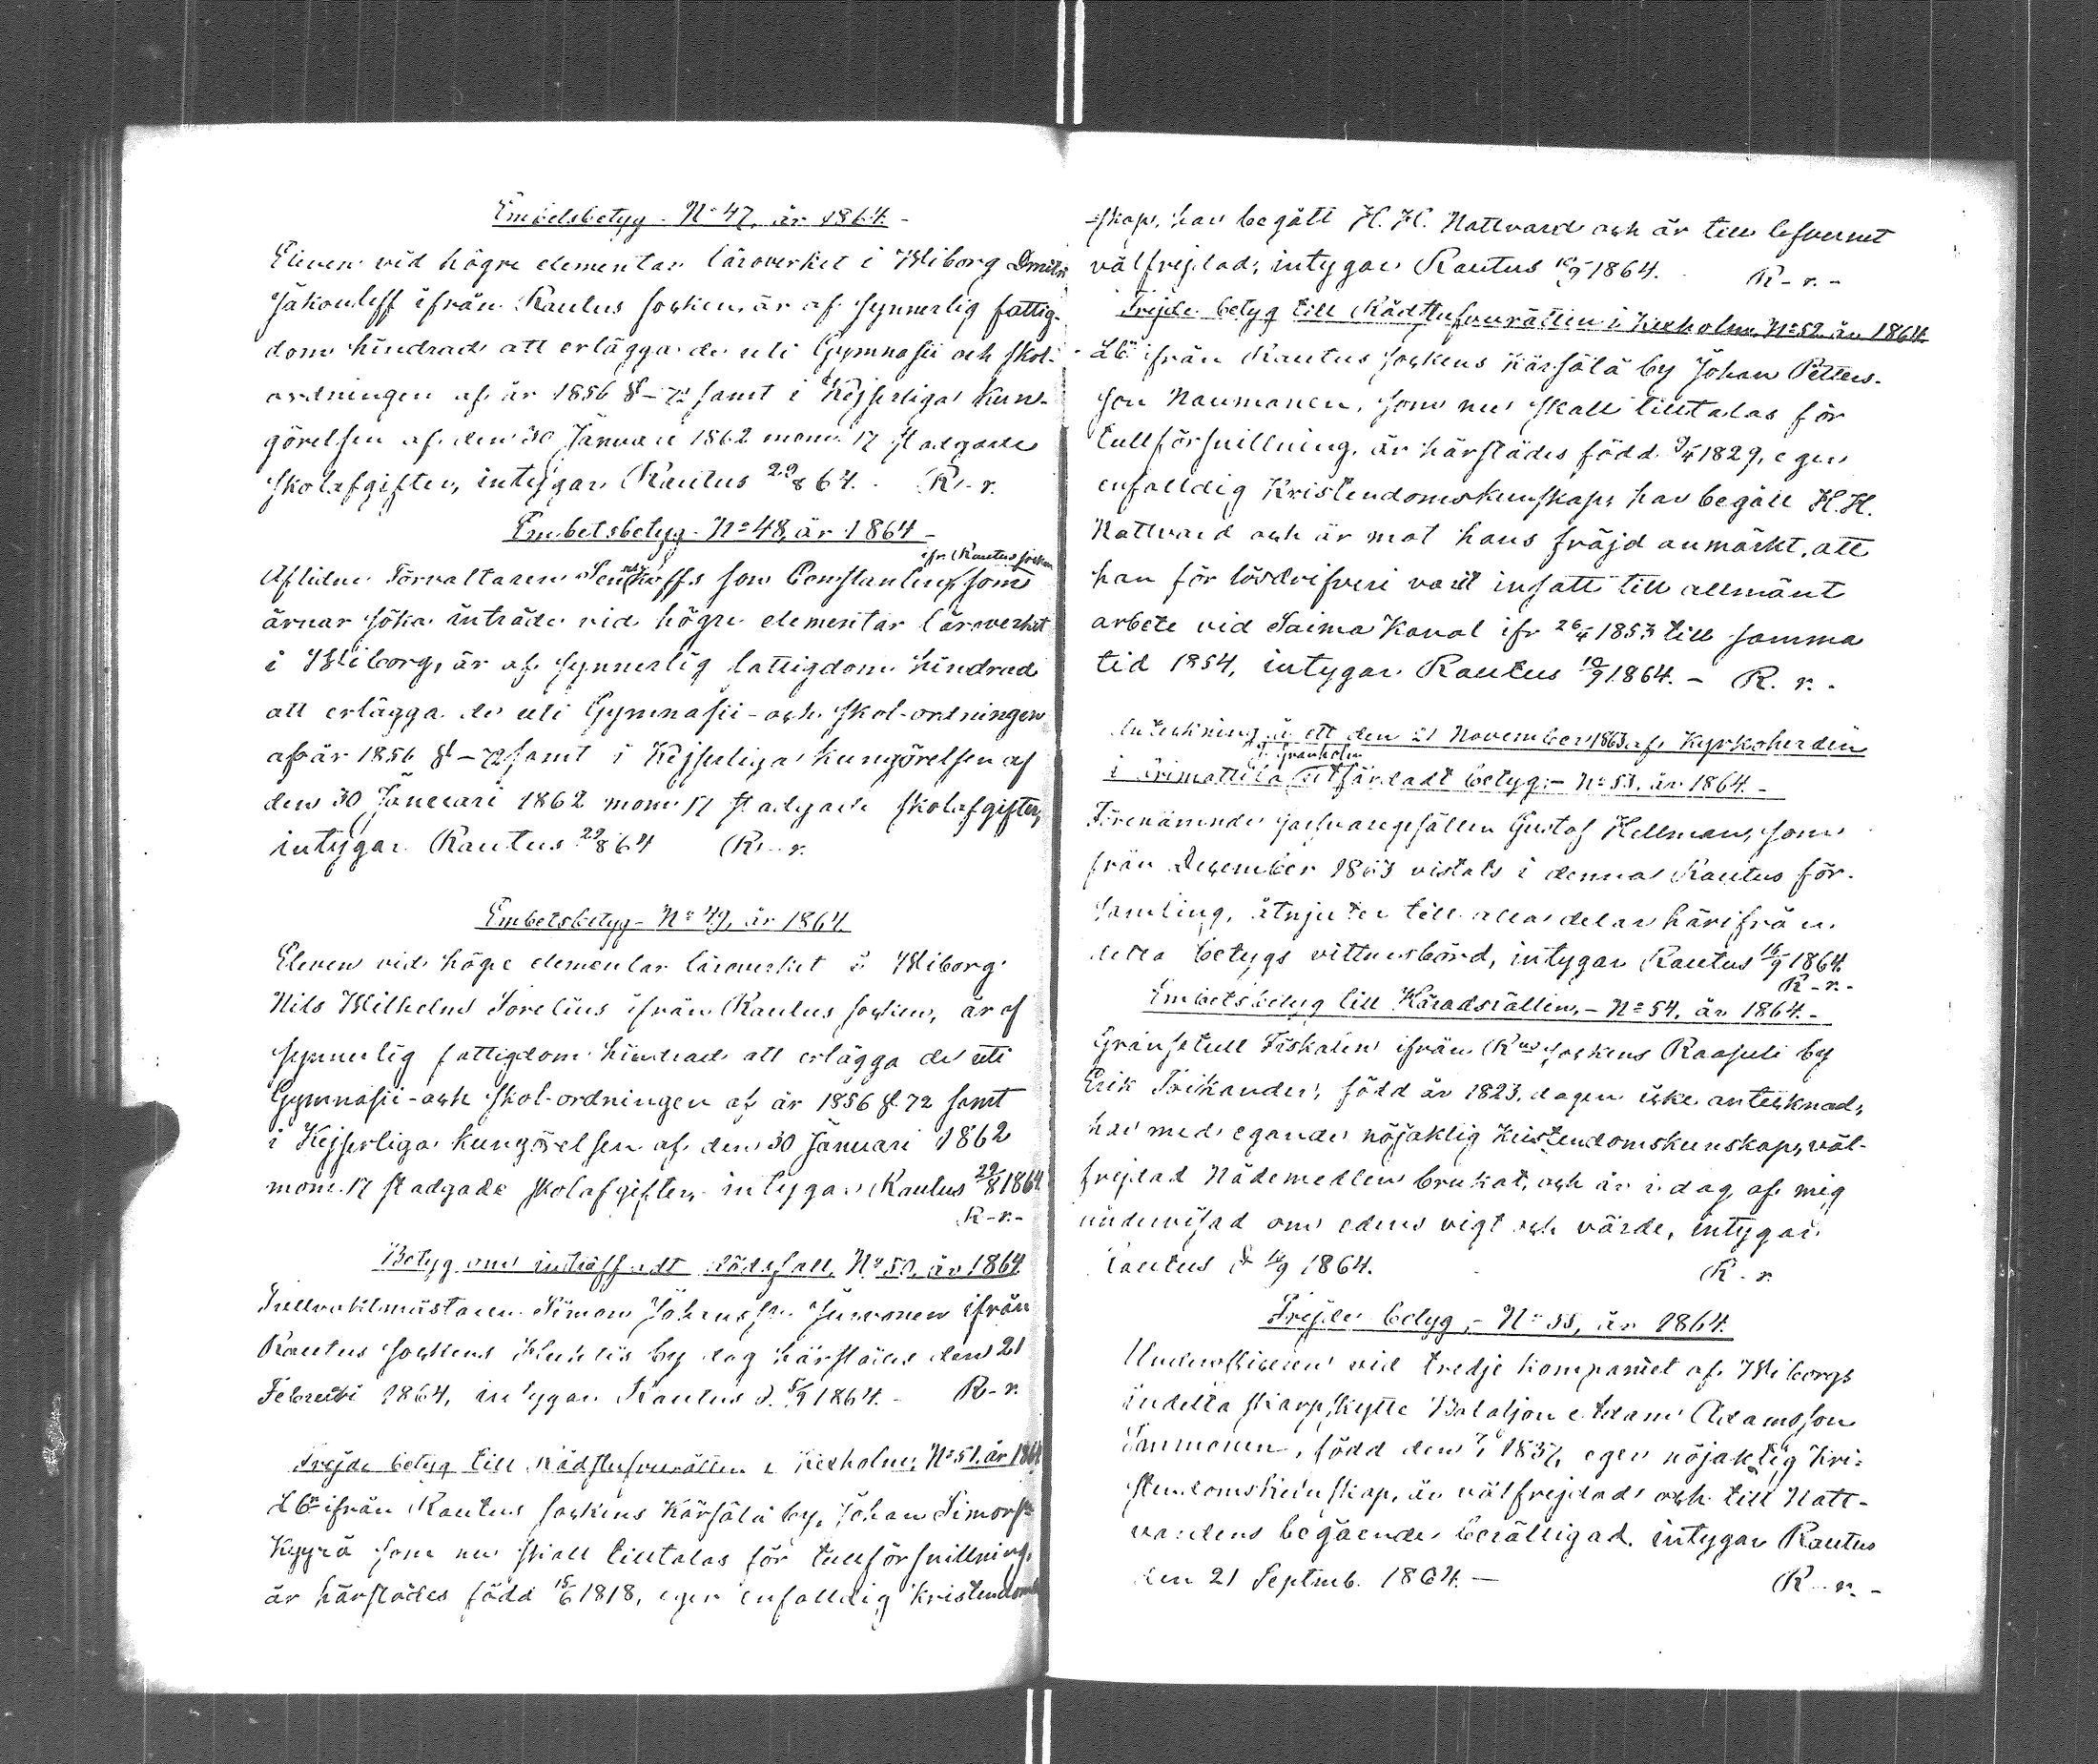 Embetsbetyg - No 47, år 1864. -
Eleven vid högre elementar läroverket i Wiborg Dmitri
Jakouleff ifrån Rautus socken, är af synnerlig fattig-
dom hindrad att erlägga de uti Gymnasii och skol-
ordningen af år 1856 § - 72 samt i Kejserliga Kun-
görelsen af den 30 Januari 1862 mom. 17 stadgade
skolafgifter, intygar Rautus 29/8 64. R. - r.
Embetsbetyg - No 48, år 1864 -
ifr. Rautus socken
Aflidne Förvaltaren son Constantin, som
ärnar söka inträde vid högre elementar läroverket
i Wiborg, är af synnerlig fattigdom hindrad
att erlägga de uti Gymnasii- och skol-ordningen
af år 1856 § - 72 samt i Kejserliga kungörelsen af
den 30 Januari 1862 mom 17 stadgade skolafgifter,
intygar Rautus 29/8 64 R. - r.
Embetsbetyg - No 49, år 1864.
Eleven vid högre elementar läroverket i Wiborg
Nils Wilhelm Sorelius ifrån Rautus socken, är af
synnerlig fattigdom hindrad att erlägga de uti
Gymnasii- och skol-ordningen af år 1856 § 72 samt
i Kejserliga kungörelsen af den 30 Januari 1862
mom. 17 stadgade skolafgifter, intygar Rautus 29/8 1864
R - r. -
Betyg om inträffadt dödsfall, No 50, år 1864
Tullvaktmästaren Simon Johansson ifrån
Rautus sockens by dog härstädes den 21
Februari 1864, intygar Rautus d. 5/9 1864. - R - r.
Frejde betyg till Rådstufvurätten i Kexholm, No 51, år 1864
ifrån Rautus sockens Kärsälä by, Johan Simonsn
Kyyrä som nu skall tilltalas för tullförsnillning,
är härstädes född 15/6 1818, eger enfaldig kristendoms
-skap, har begått H. H. Nattvard och är till lefvernet
välfrejdad, intygar Rautus 10/9 1864. R - r. -
Frejde betyg till Rådstufvurätten i Kexholm No 52 år 1864.
ifrån Rautus sockens Kärsälä by Johan Petters-
son Naumanen, som nu skall tilltalas för
tullförsnillning, är härstädes född 9/4 1829, eger
enfaldig Kristendomskunskap, har begått H. H.
Nattvard och är mot hans fräjd anmärkt, att
han för lösdrifveri varit insatt till allmänt
arbete vid Saima Kanal ifr 26/4 1853 till samma
tid 1854, intygar Rautus 10/9 1864. - R. r. -
Anteckning å ett den 21 November 1863 af Kyrkoherden
Granholm
i Orimattila utfärdadt betyg: - No 53, år 1864. -
Förenämnde garfvaregesällen Gustaf Hellman, som
från December 1863 vistats i denna Rautus för-
samling, åtnjuter till alla delar härifrån
detta betygs vittnesbörd, intygar Rautus 16/9 1864.
R - r. -
Embetsbetyg till Häradsrätten, - No 54, år 1864. -
Gränsetull Fiskalen ifrån Rus sockens Raasuli by
Erik Frikander, född år 1823, dagen icke antecknad,
har med egande nöjaktig kristendomskunskap, väl-
frejdad Nådemedlen brukat, och är i dag af mig
undervisad om edens vigt och värde, intygar
Rautus d 19/9 1864. R. - r.
Frejde betyg, - No 55, år 1864.
Underofficeren vid tredje kompaniet af Wiborgs
indelta skarpskytte Bataljon Adam Adamsson
Immonen, född den 1837, eger nöjaktig Kri-
stendomskunskap, är välfrejdad och till Natt-
vardens begående berättigad, intygar Rautus
den 21 Septmb. 1864. - R. - r. -